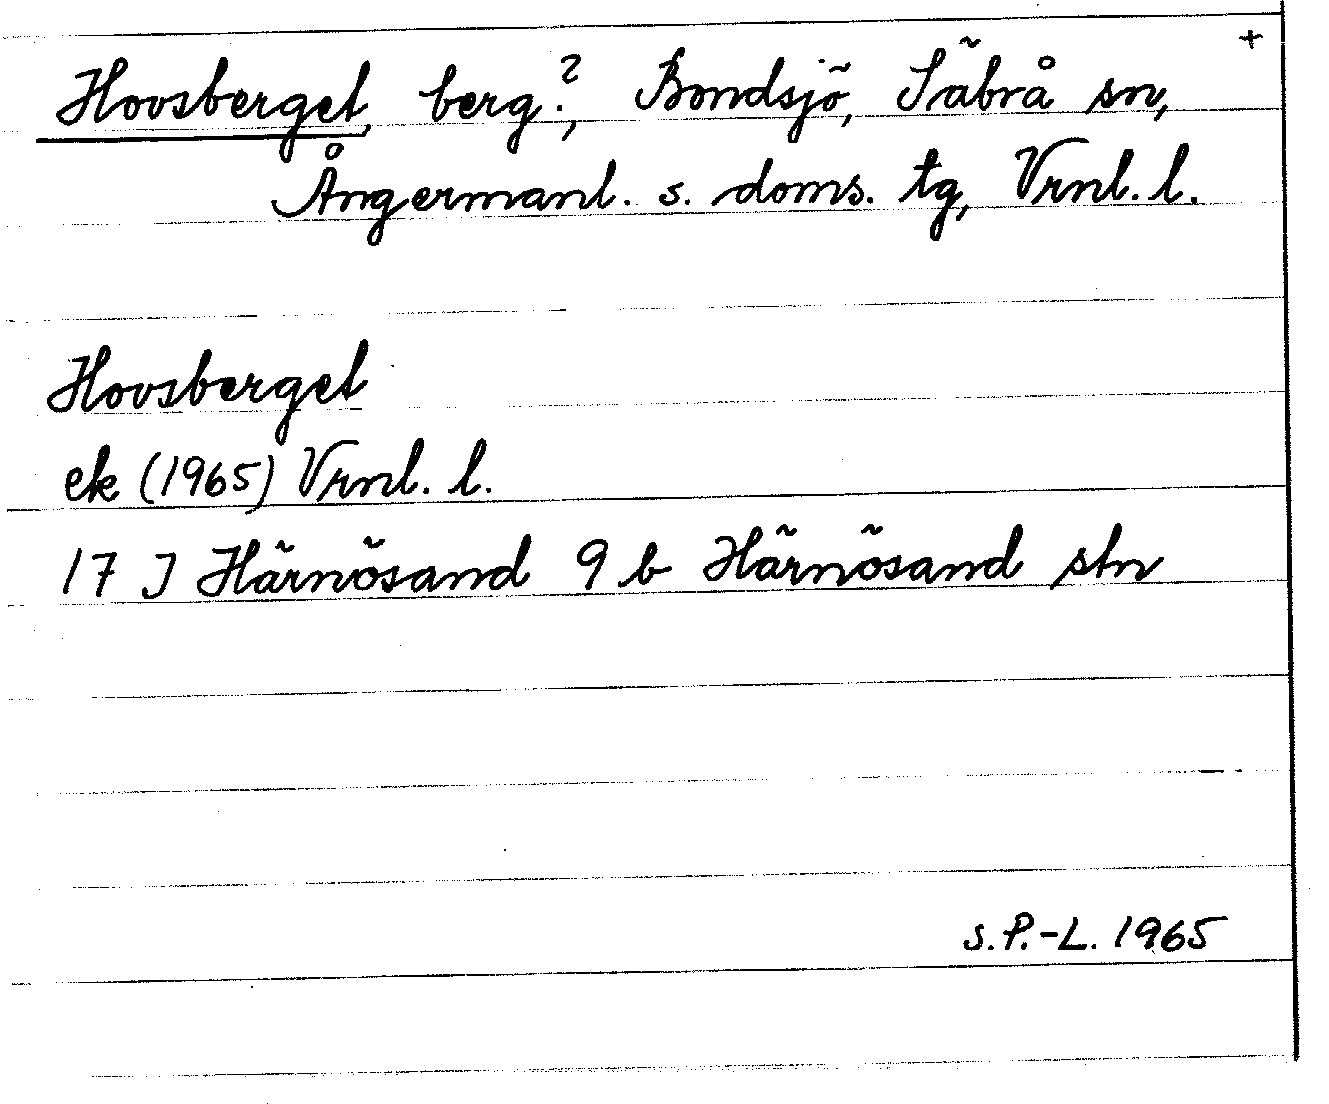 Hovsberget, berg?, Bondsjö, Säbrå sn, +
Ångermanl. s. doms. tg, Vrnl. l.
Hovsberget
ek (1965) Vrnl. l.
17 J Härnösand 9 b Härnösand stn
S.P.-L. 1965